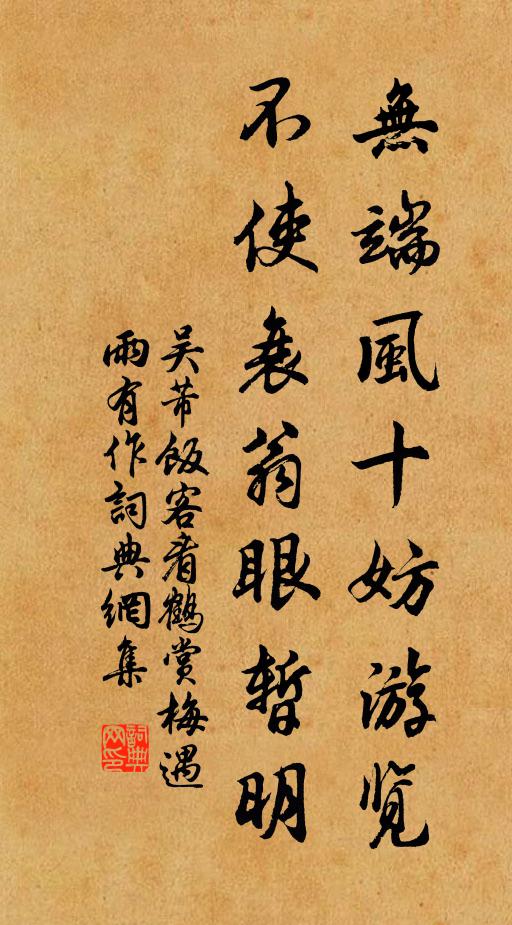 無端風十妨游览
不使衰翁眼暫明
吴芾飯客看鶴赏梅遇
雨有作詞典網集
詞典
网印